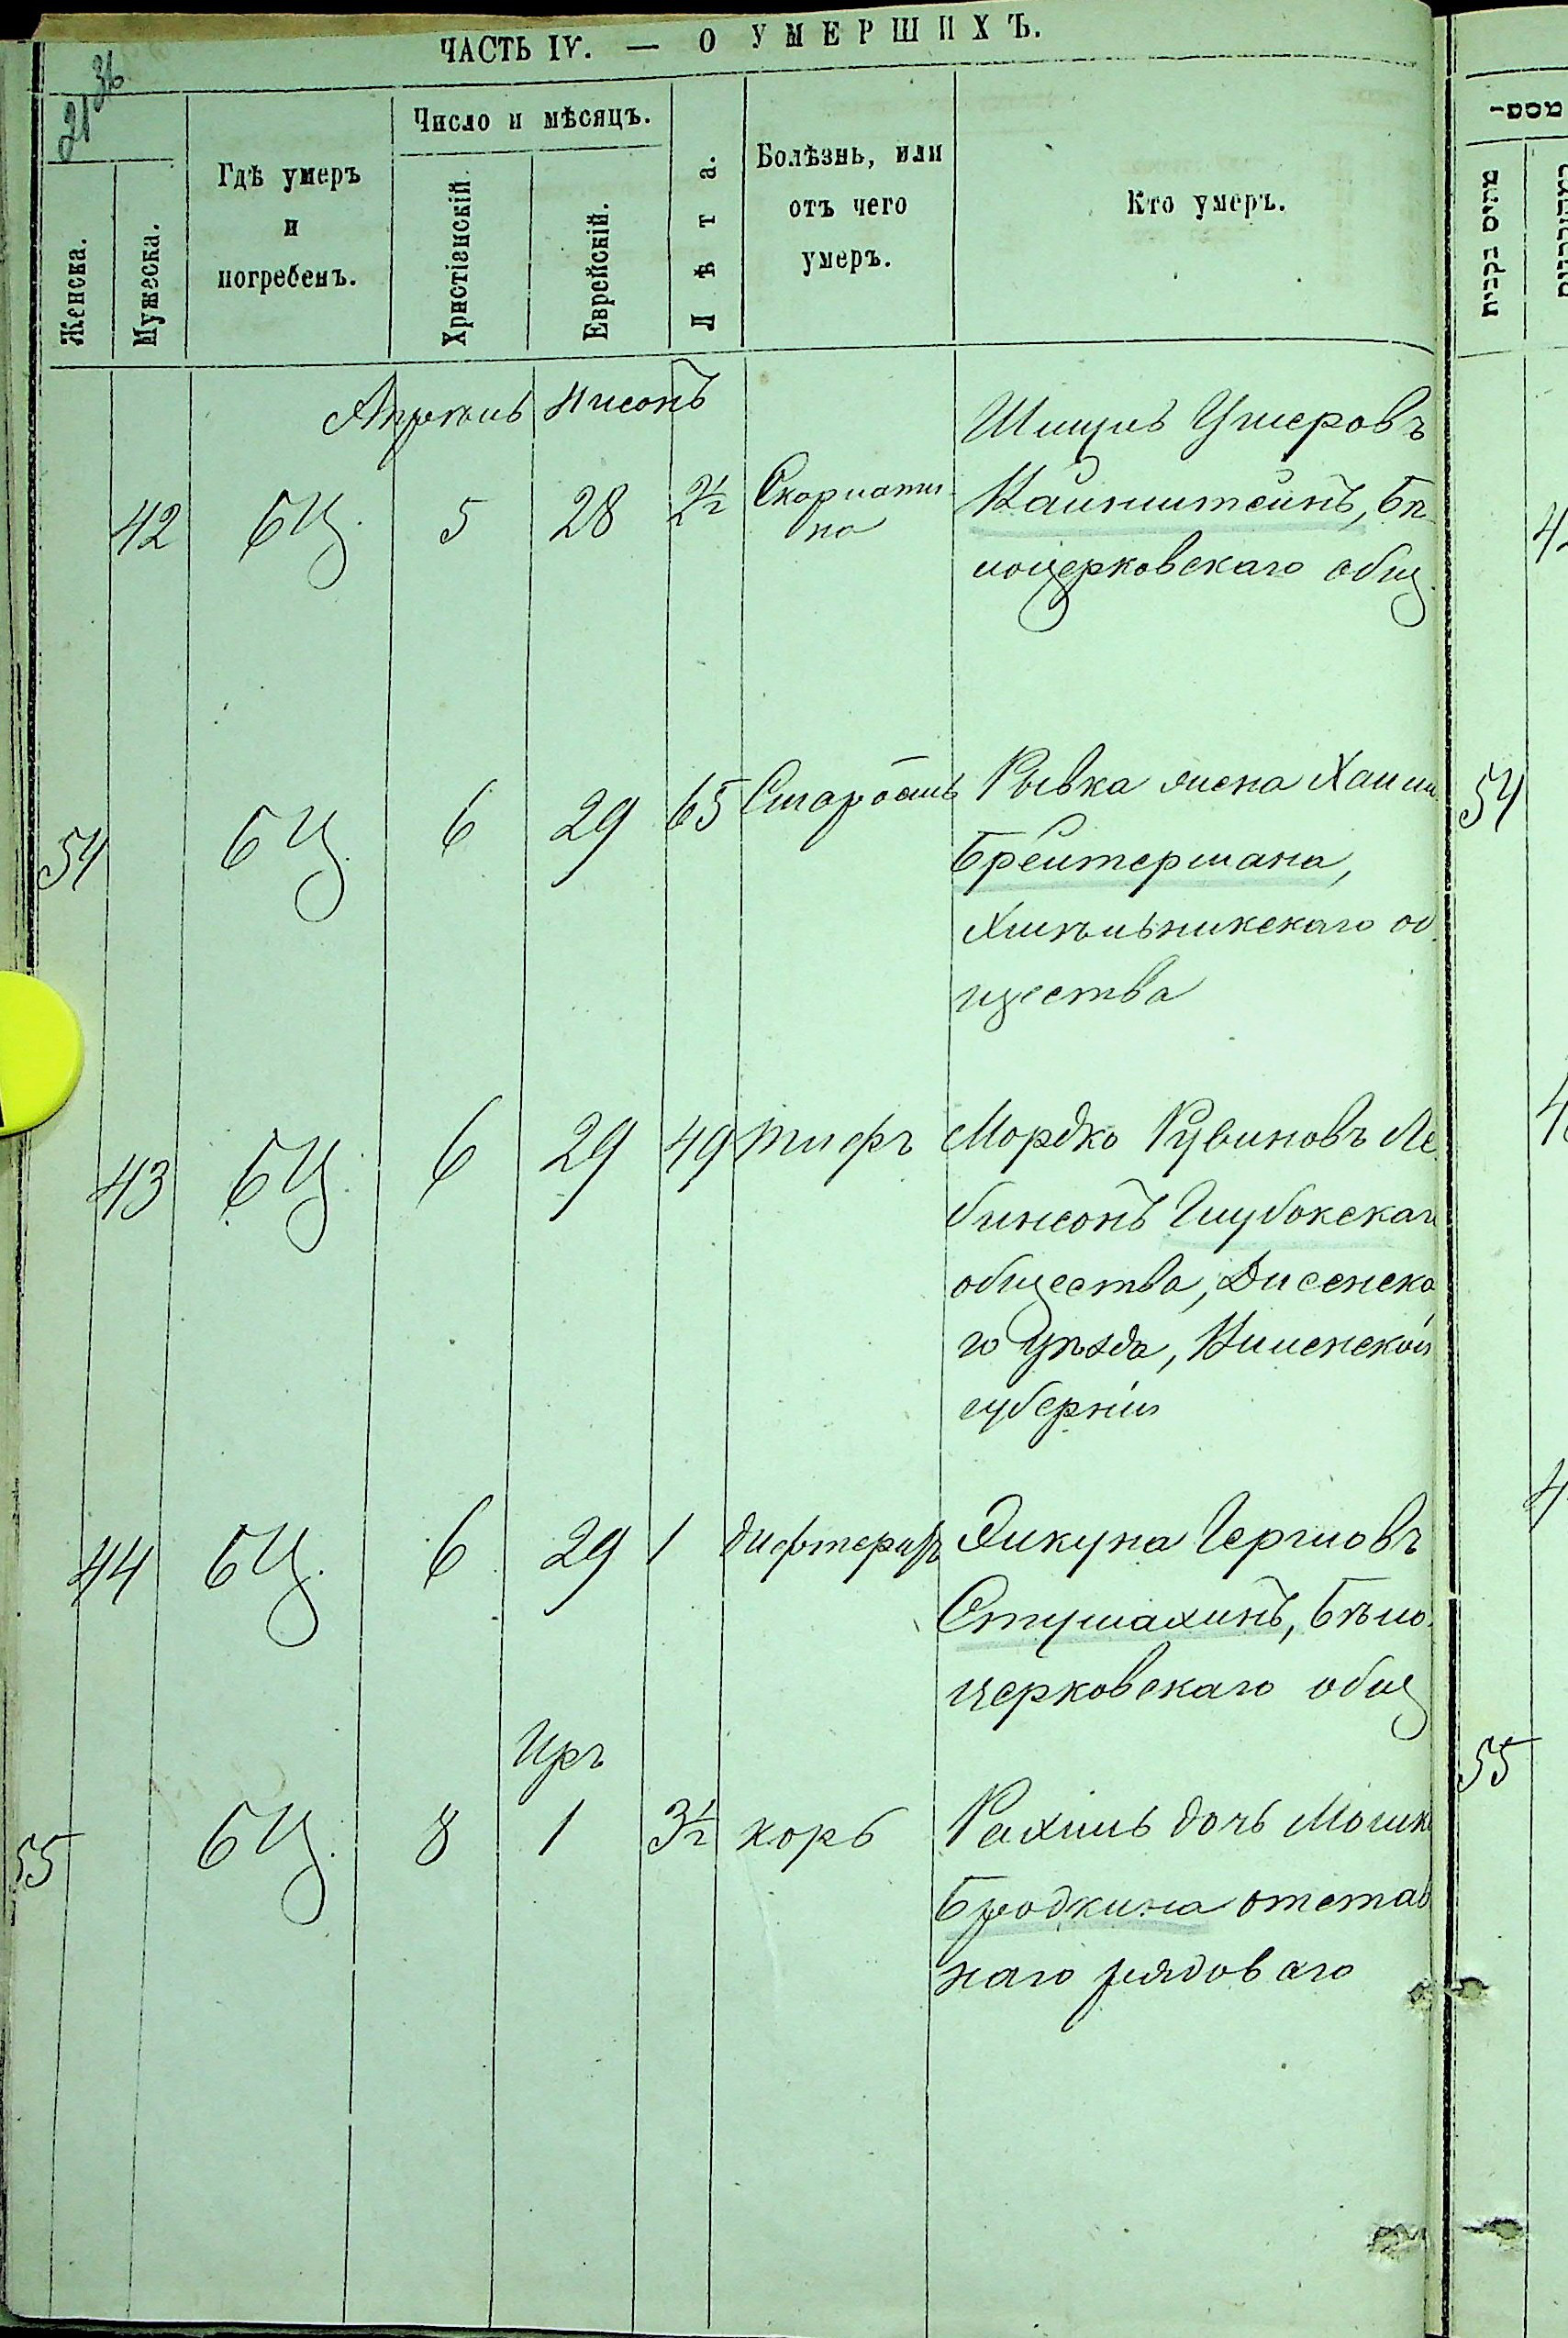 ЧАСТЬ IV. — О УМЕРШИХЪ.
21 36
Женска.
Мужеска.
Гдѣ умеръ
и
погребенъ.
Число и мѣсяцъ.
Христіанскій.
Еврейскій.
Лѣта.
Болѣзнь, или
отъ чего
умеръ.
Кто умеръ.
Апрель Нисонъ
42 БЦ. 5 28 2½ Скорлати-
на
Ушеровъ
Вайнштейнъ, Бѣ
лоцерковскаго общ.
54 БЦ. 6 29 65 Старость
Рывка жена Хаима
Брейтермана,
Хмѣльникскаго об
щества
43 БЦ. 6 29 49 тифъ
Мордко Рувиновъ Ле
бинсонъ Глубокскаго
общества, Дисенска
го уѣзда, Виленской
губерніи
44 БЦ. 6 29 1 дифтеритъ
Гершовъ
Стушахинъ, Бѣло
церковскаго общ
Иръ
55 БЦ. 8 1 3½ корь
Рахиль дочь Мошк
Бродкина отстав
наго рядоваго
מספ-
מהיום בקבית
54
55